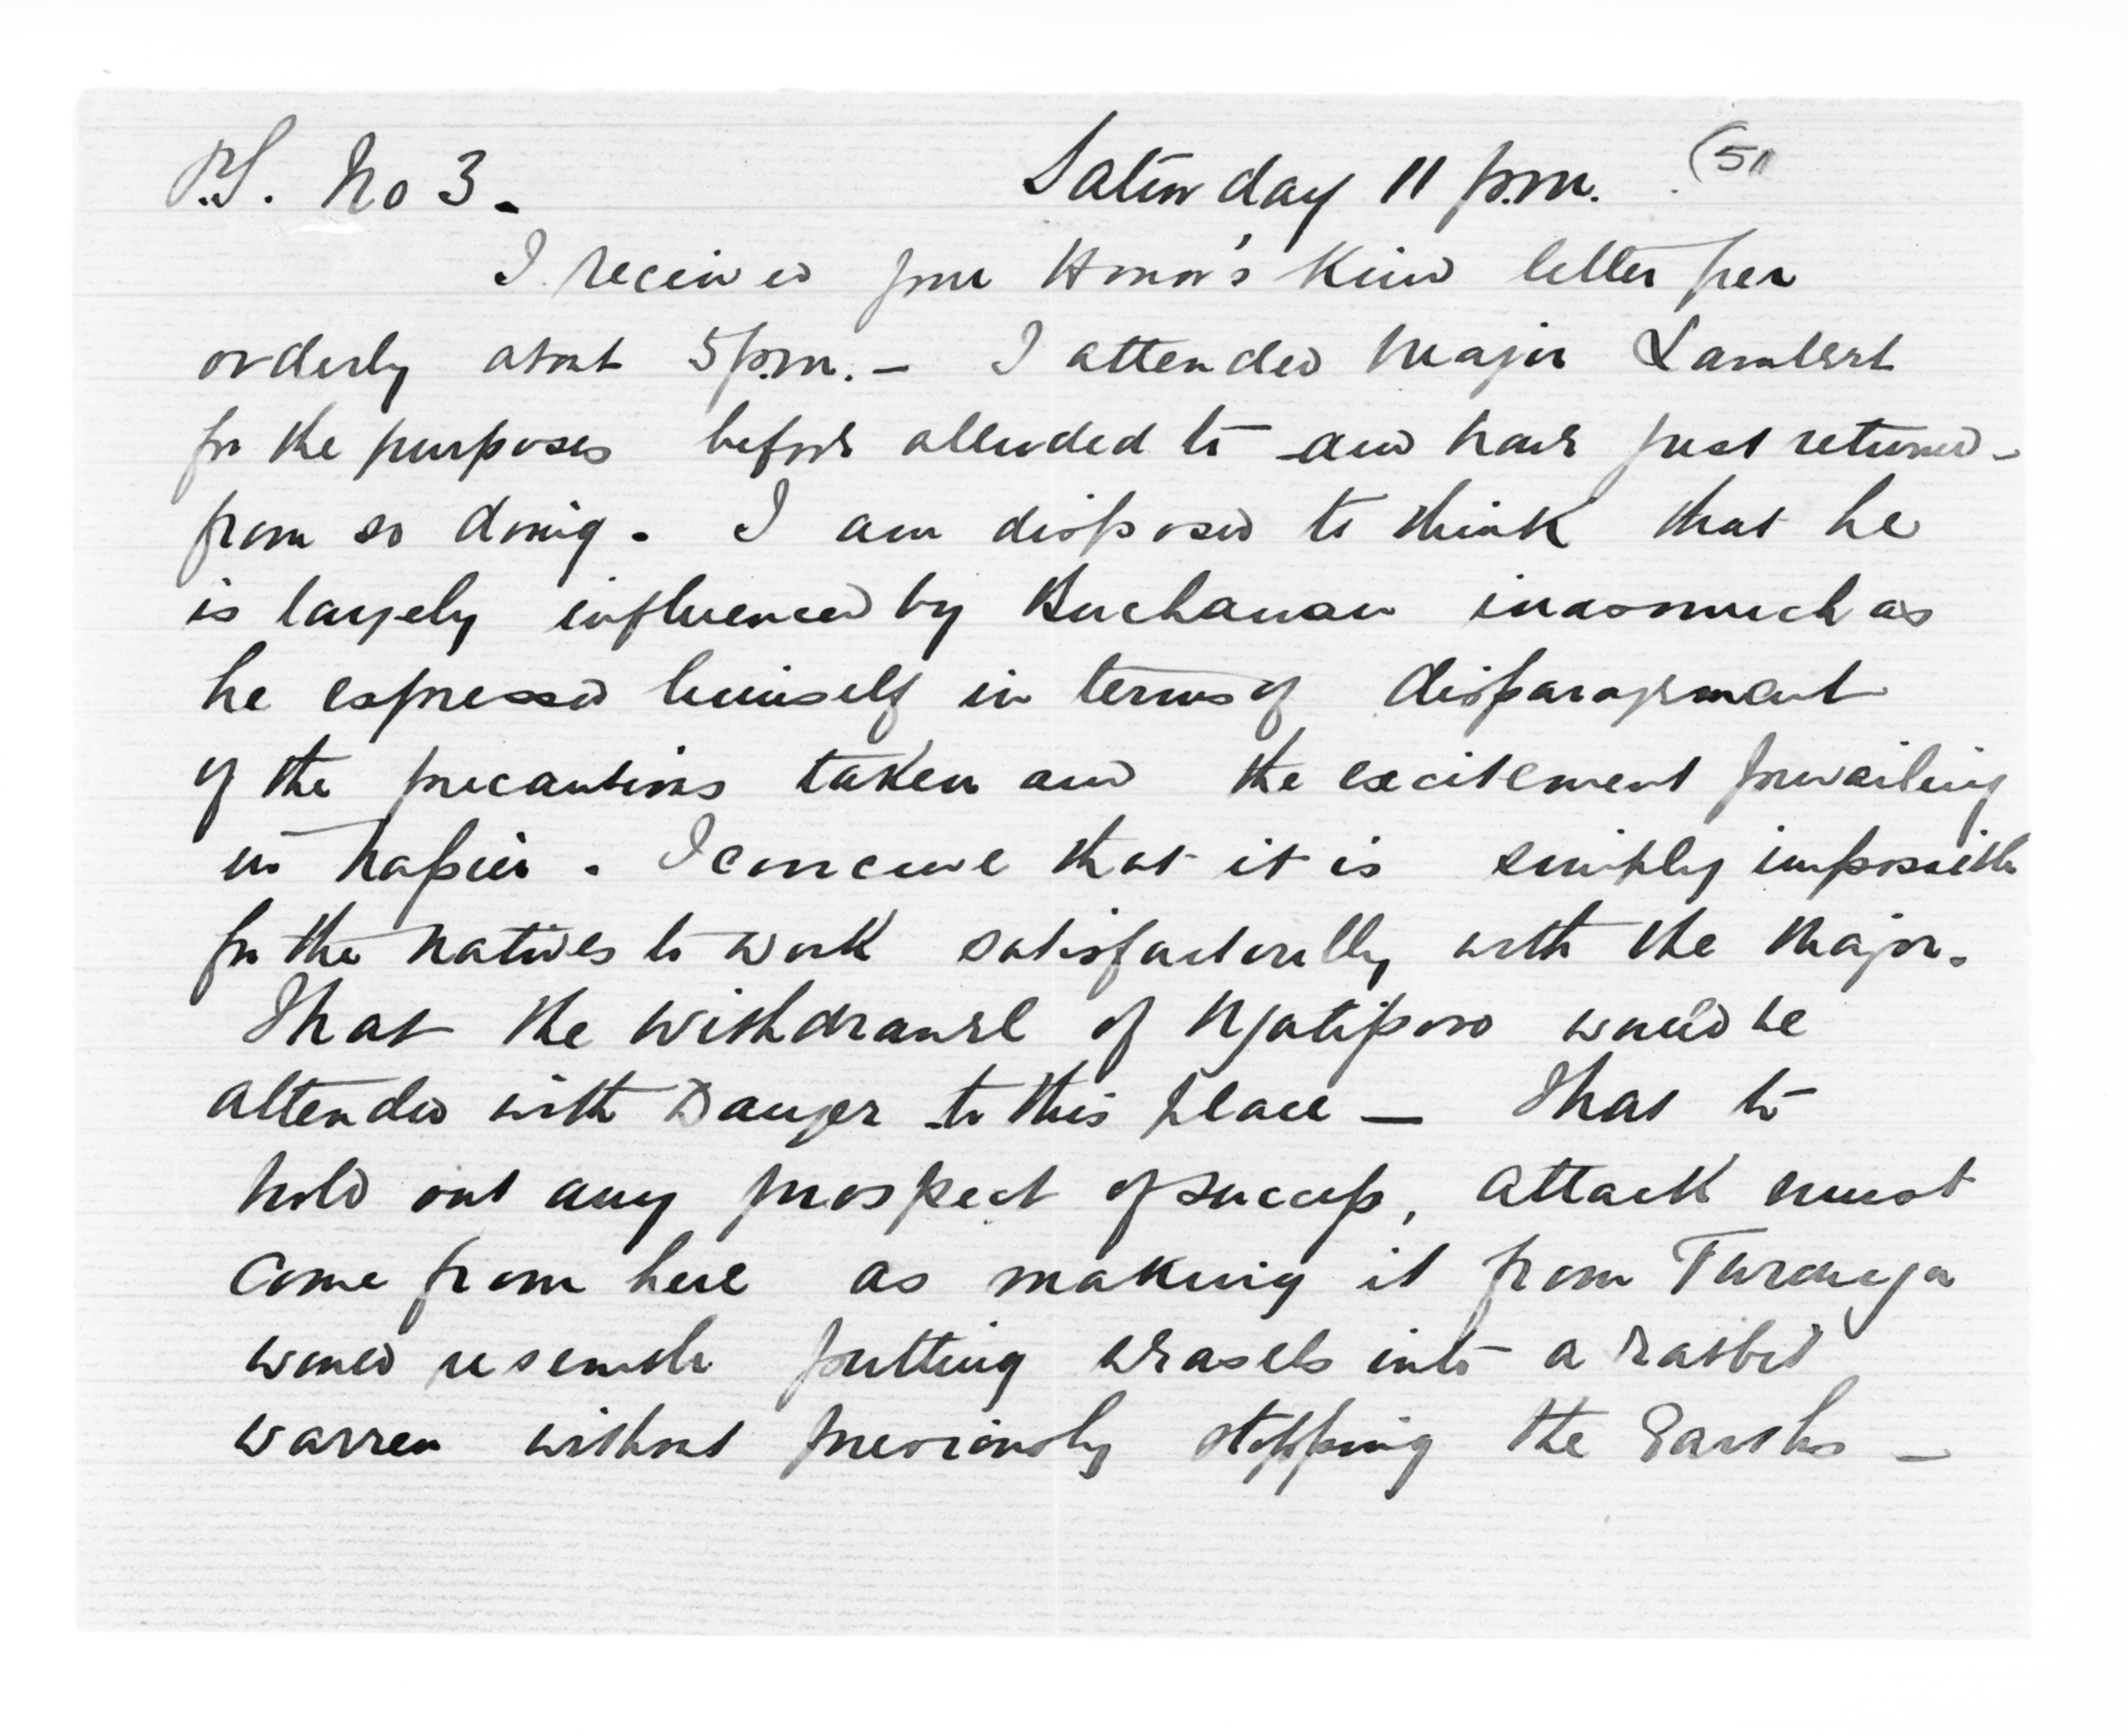 P.S. No 3. Saturday 11 p.m. (511
I received your Honor's kind letter per
orderly about 5 p.m. – I attended Major Lambert
for the purposes before alluded to and have just returned –
from so doing. I am disposed to think that he
is largely influenced by Buchanan inasmuch as
he expressed himself in terms of disparagement
of the precautions taken and the excitement prevailing
in Napier. I conceive that it is simply impossible
for the Natives to work satisfactorily with the Major.
That the withdrawel of Ngatiporo would be
attended with Danger to this place — That to
hold out any prospect of success, attack must
come from here as making it from Turanga
would resemble putting weasels into a rabbit
warren without previously stopping the Earths —